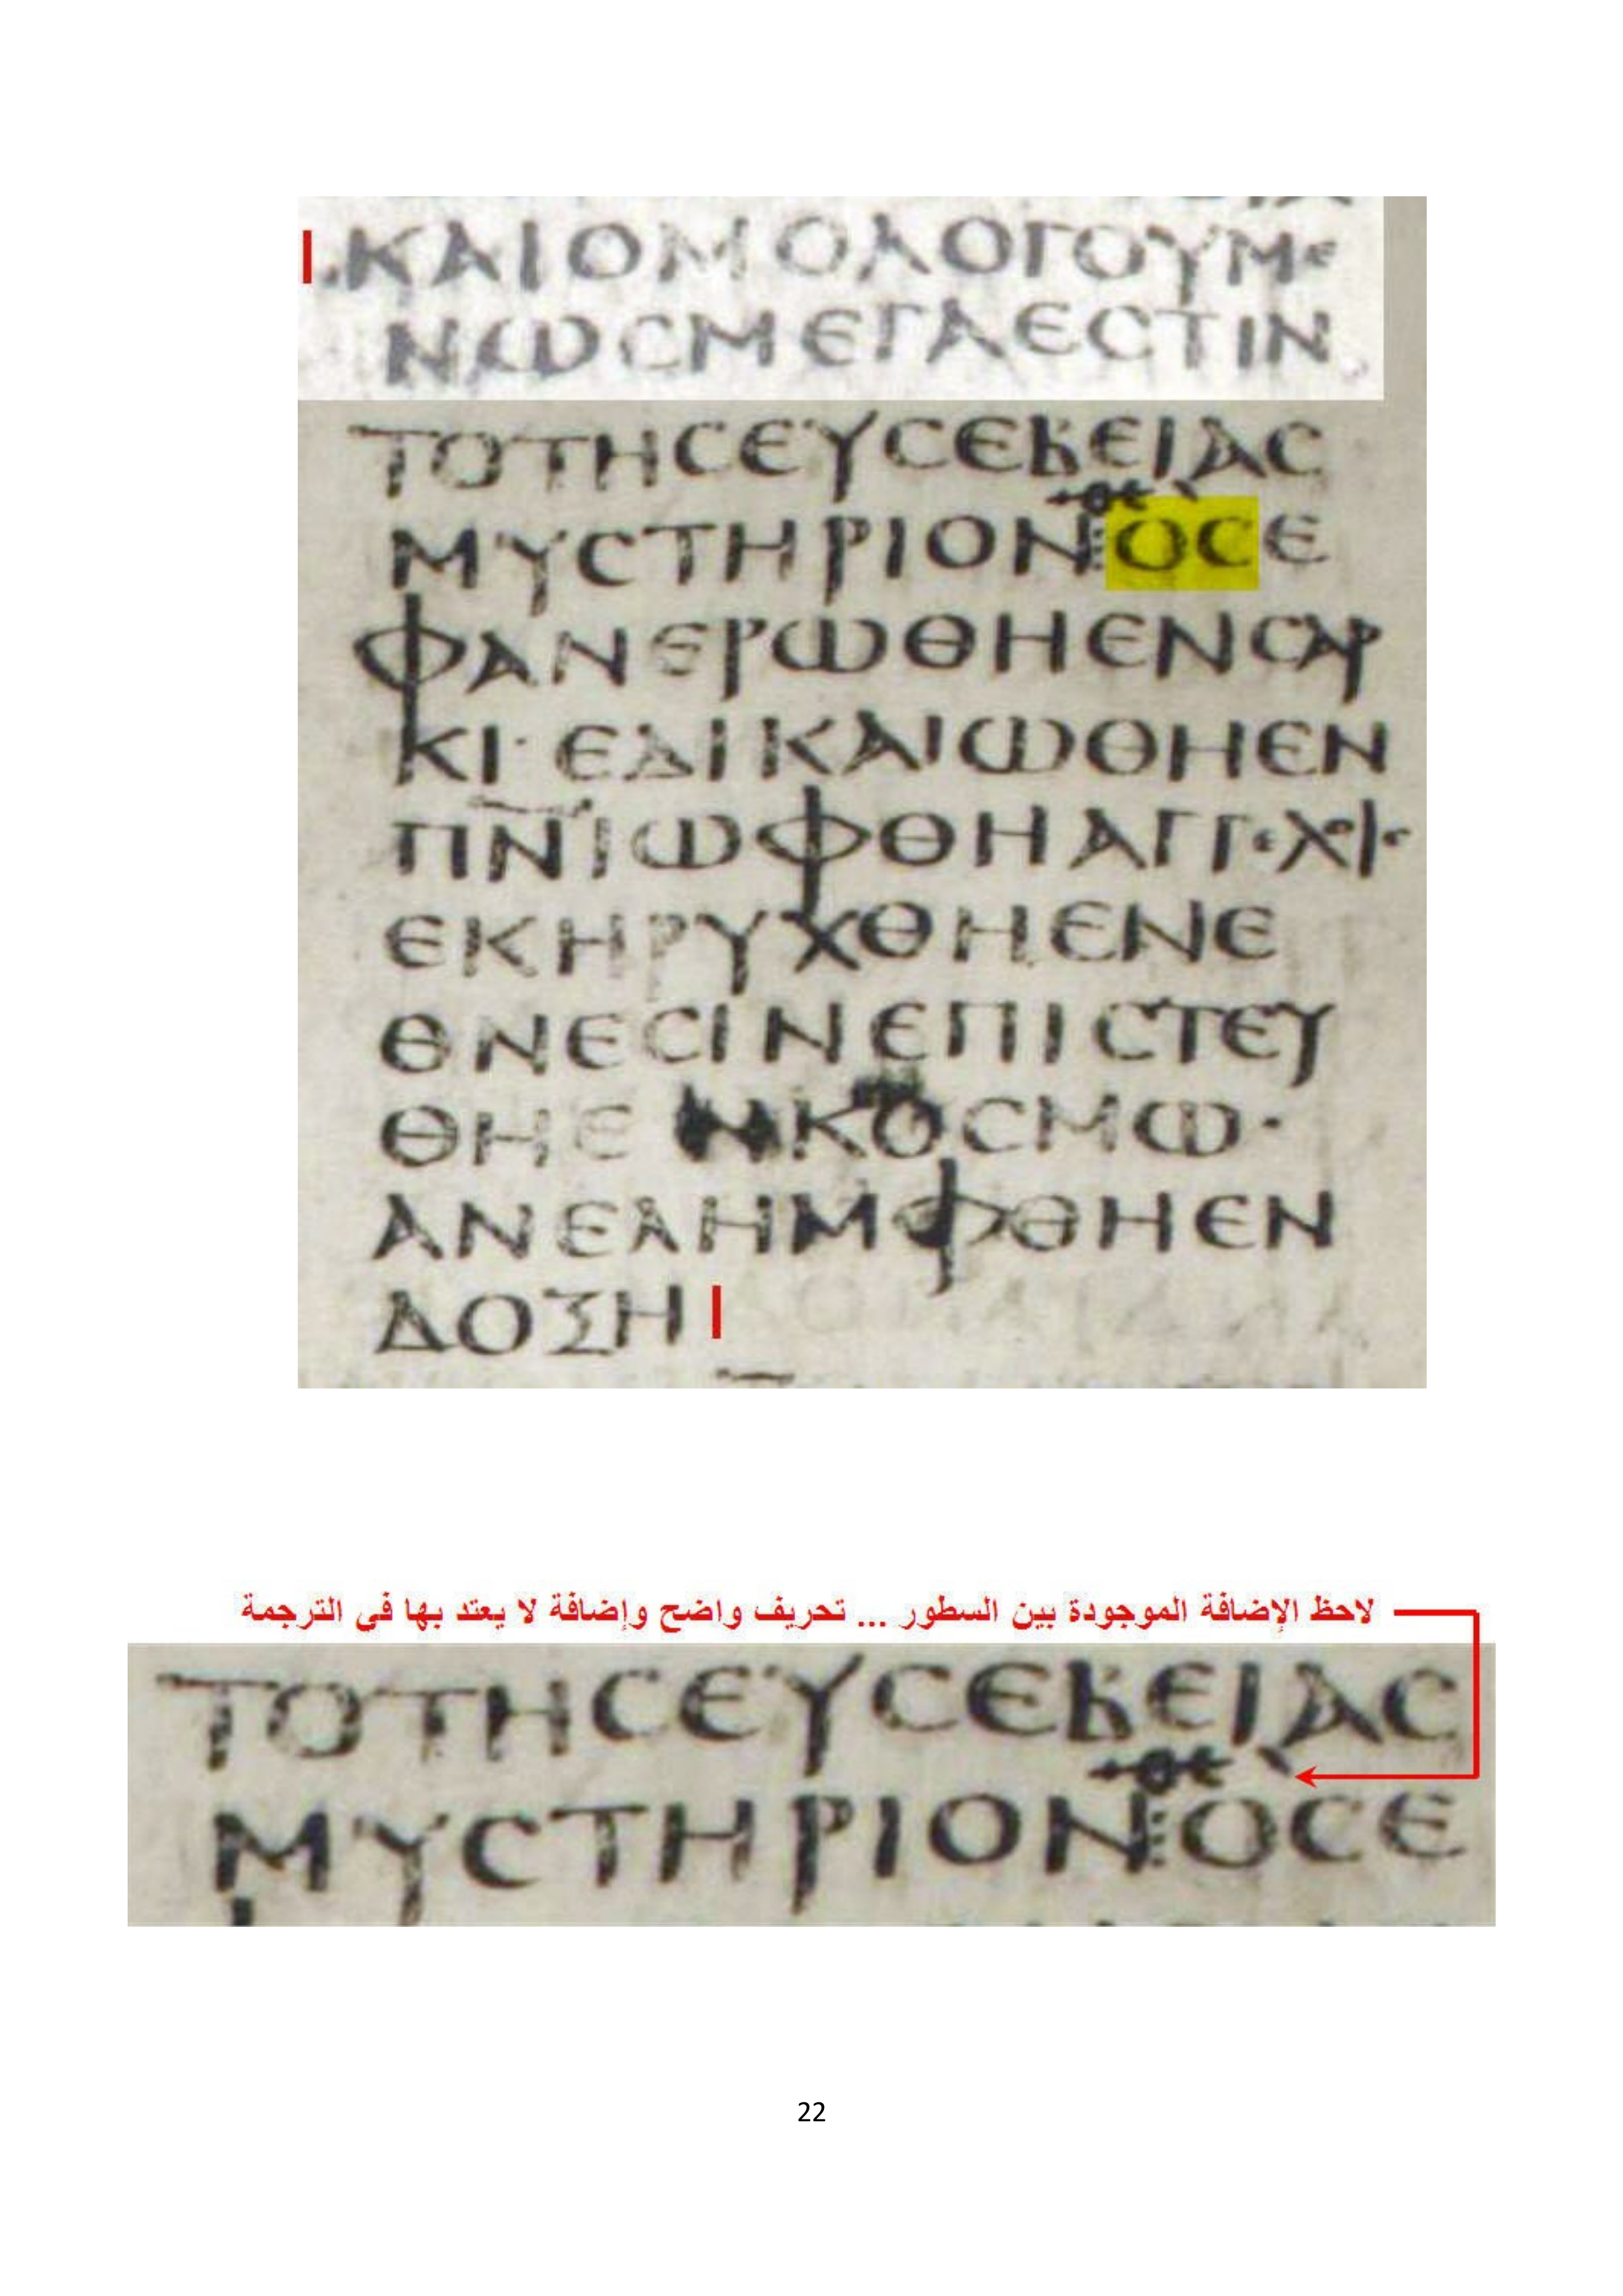 ΚΑΙΟΜΟΛΟΓΟΥΜΕ
ΝΩϹΜΕΓΑΕϹΤΙΝ
ΤΟΤΗϹΕΥϹΕΒΕΙΑϹ
θε
ΜΥϹΤΗΡΙΟΝΟϹΕ
ΦΑΝΕΡΩΘΗΕΝϹΑΡ
ΚΙ·ΕΔΙΚΑΙΩΘΗΕΝ
ΠΝΙΩΦΘΗΑΓΓΕΛΟΙϹ
ΕΚΗΡΥΧΘΗΕΝΕ
ΘΝΕϹΙΝΕΠΙϹΤΕΥ
ΘΗΕΝΚΟϹΜΩ·
ΑΝΕΛΗΜΦΘΗΕΝ
ΔΟΞΗ
لاحظ الإضافة الموجودة بين السطور ... تحريف واضح وإضافة لا يعتد بها فى الترجمة
ΤΟΤΗϹΕΥϹΕΒΕΙΑϹ
θε
ΜΥϹΤΗΡΙΟΝΟϹΕ
22